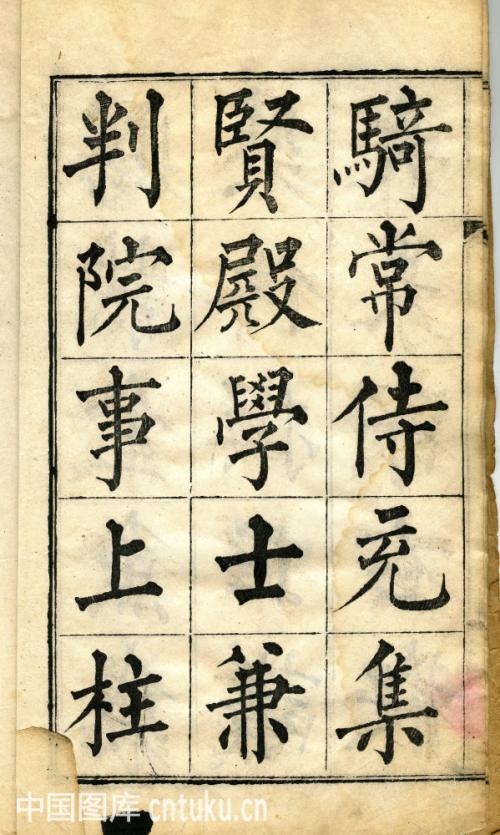 騎常侍充集
賢殿學士兼
判院事上柱
中国图库 cntuku.cn